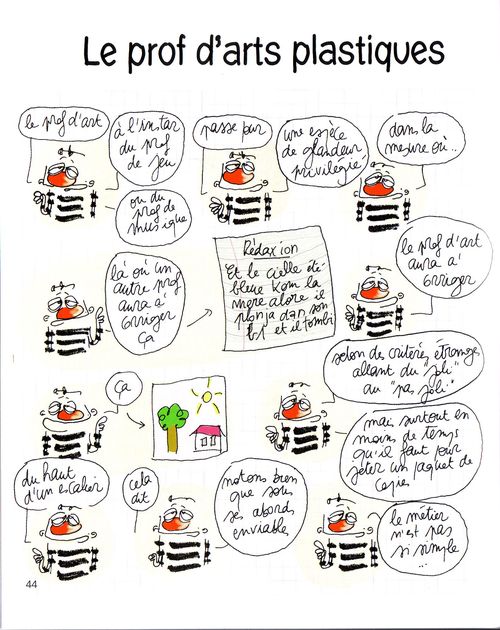 Le prof d'arts plastiques
le prof d'art
à l'instar
du prof
de jeu
ou du
prof de
musique
passe pour
une espèce
de glandeur
privilégié
dans la
mesure où...
là où un
autre prof
aura à
corriger
ça
Rédaxion
Et le cielle été
bleue kom la
mère alore il
plonja dan son
et il tombi
le prof d'art
aura à
corriger
ça
selon des critères étranges
allant du "joli"
au "pas joli"
mais surtout en
moins de temps
qu'il faut pour
jeter un paquet de
copies
du haut
d'un escalier
cela
dit
notons bien
que sous
ses abords
enviable
le métier
n'est pas
si simple
...
44